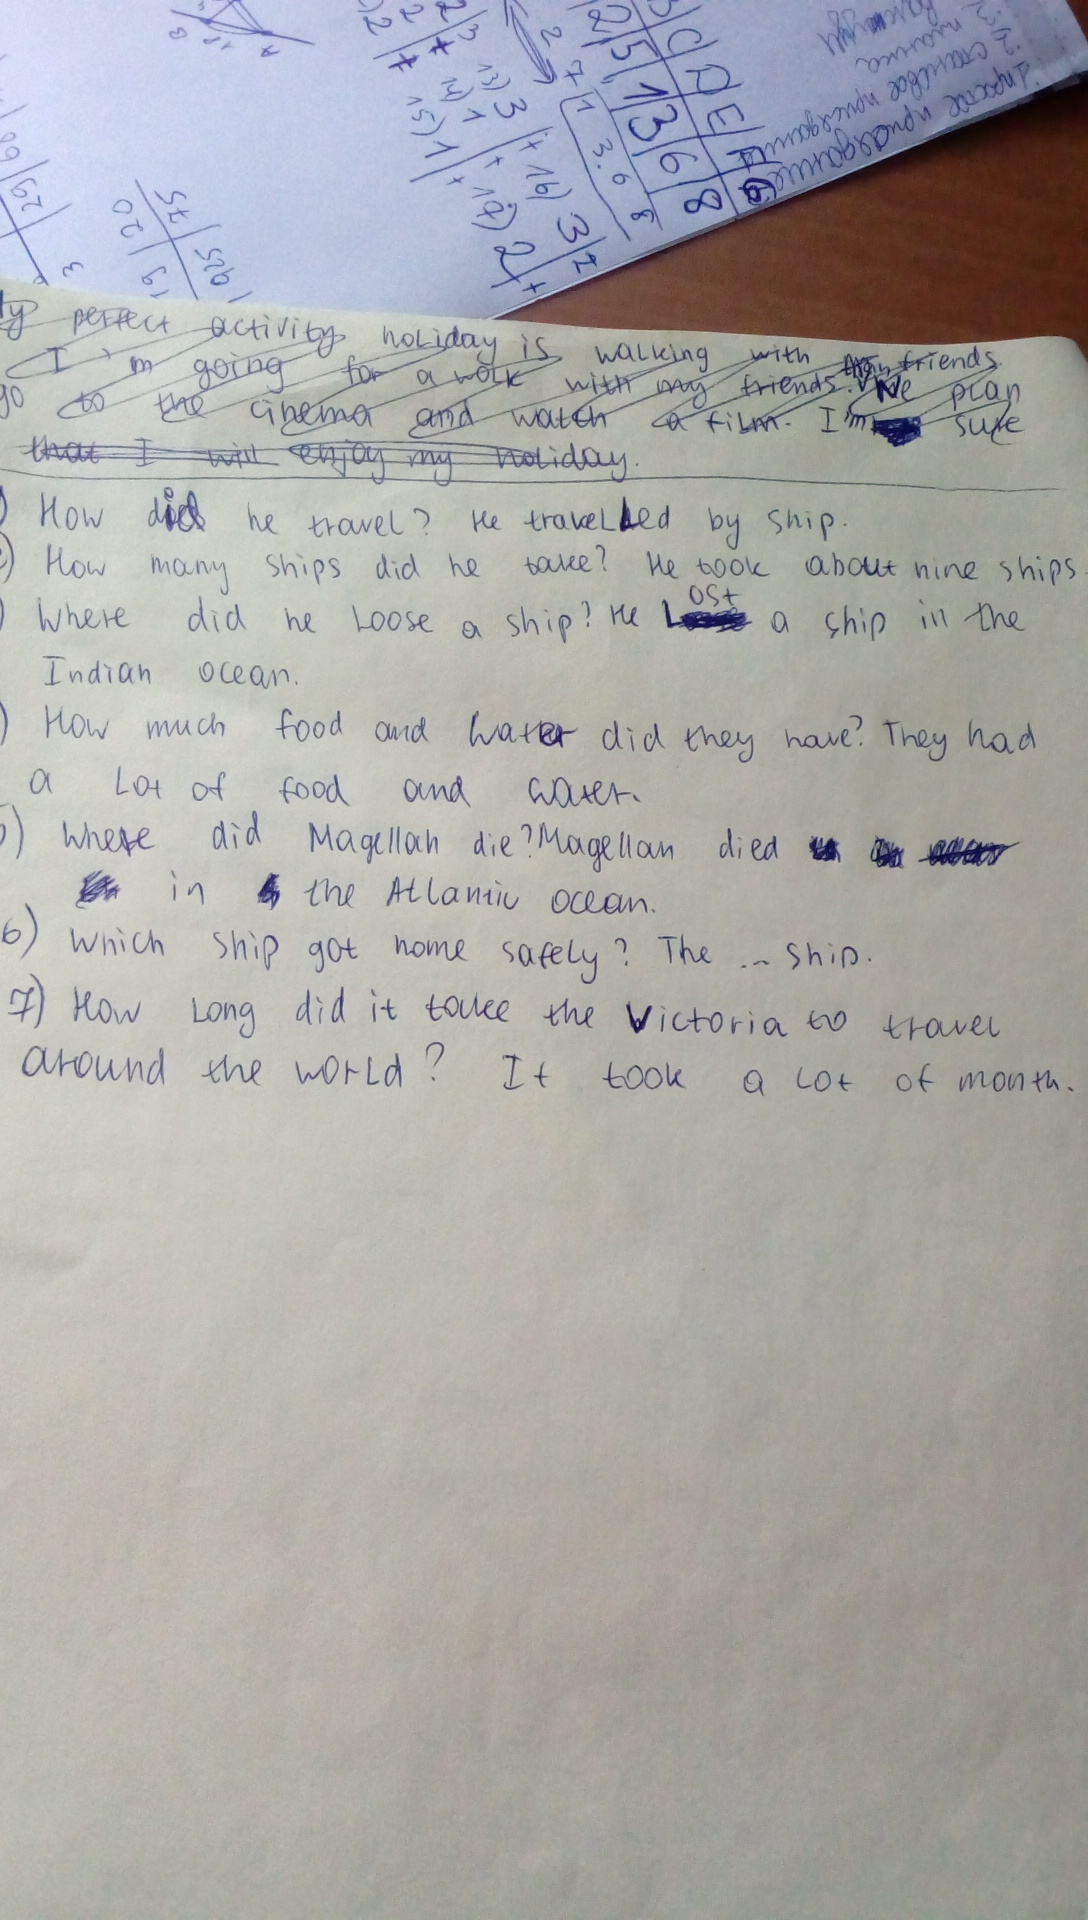 B C D E F G
2 5 1 3 6 8
7 1 3.6 8
13) 3 + 16) 3 2
14) 1 + 17) 2 +
15) 1 +
75
20
19 925
29
3
perfect activity holiday is walking with friends
I'm going for a wolk with my friends. We plan
go to the cinema and watch a film. I'm sure
that I will enjoy my holiday.
) How did he travel? He travelLed by ship.
) How many ships did he take? He took about nine ships.
) Where did he Loose a ship? He Lost a ship in the
Indian ocean.
) How much food and water did they have? They had
a Lot of food and water.
) Where did Magellan die? Magellan died
in the Atlantic ocean.
6) Which ship got home safely? The ... ship.
7) How Long did it take the Victoria to travel
around the world? It took a Lot of month.